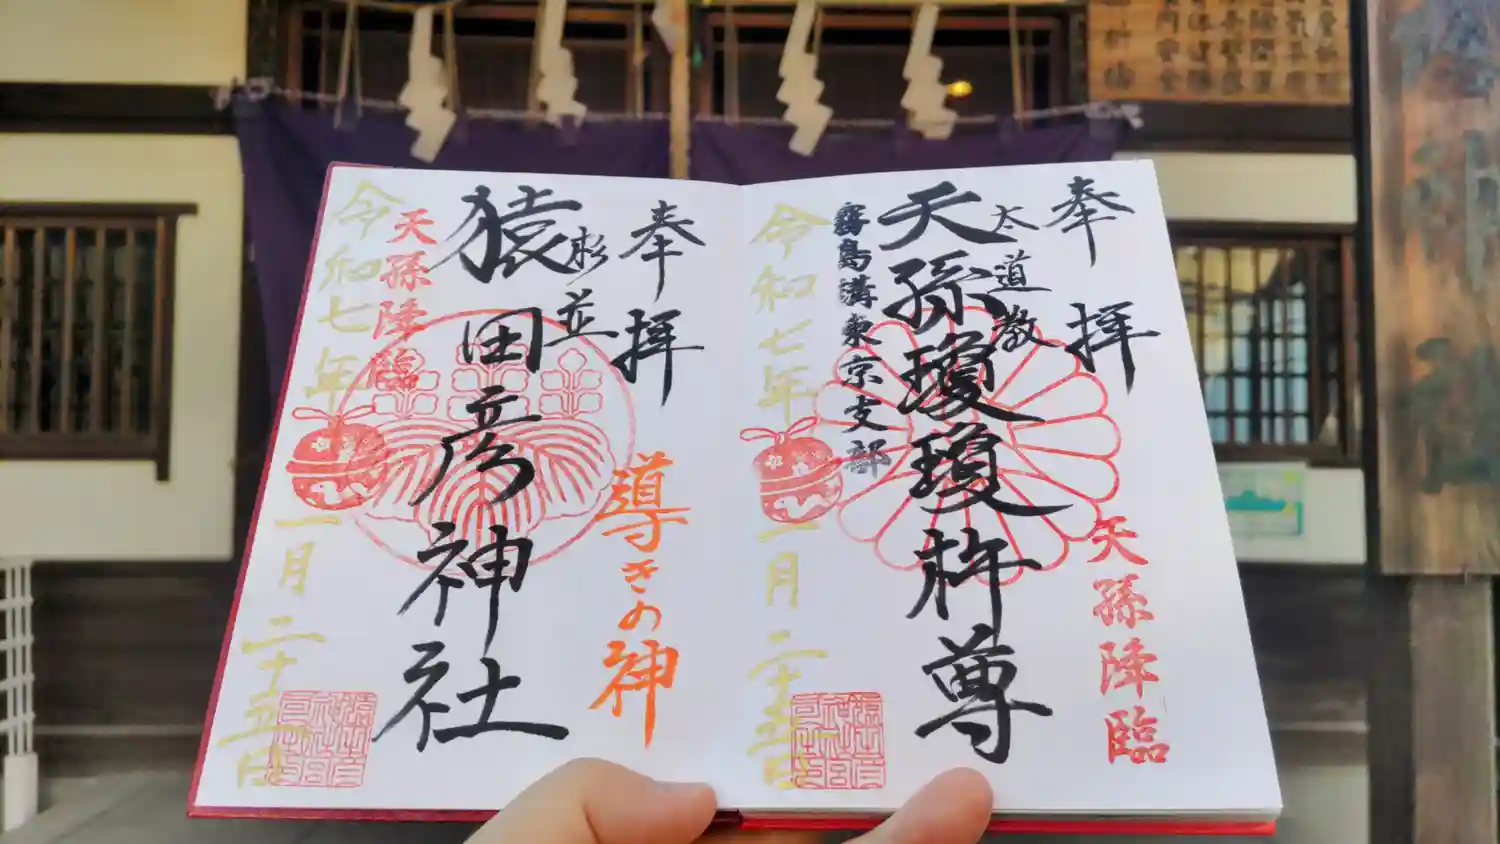 奉拝
太道教
天孫瓊瓊杵尊
霧島溝東京支部
天孫降臨
令和七年
一月二十五日
奉拝
導きの神
杉並
猿田彦神社
天孫降臨
令和七年
一月二十五日